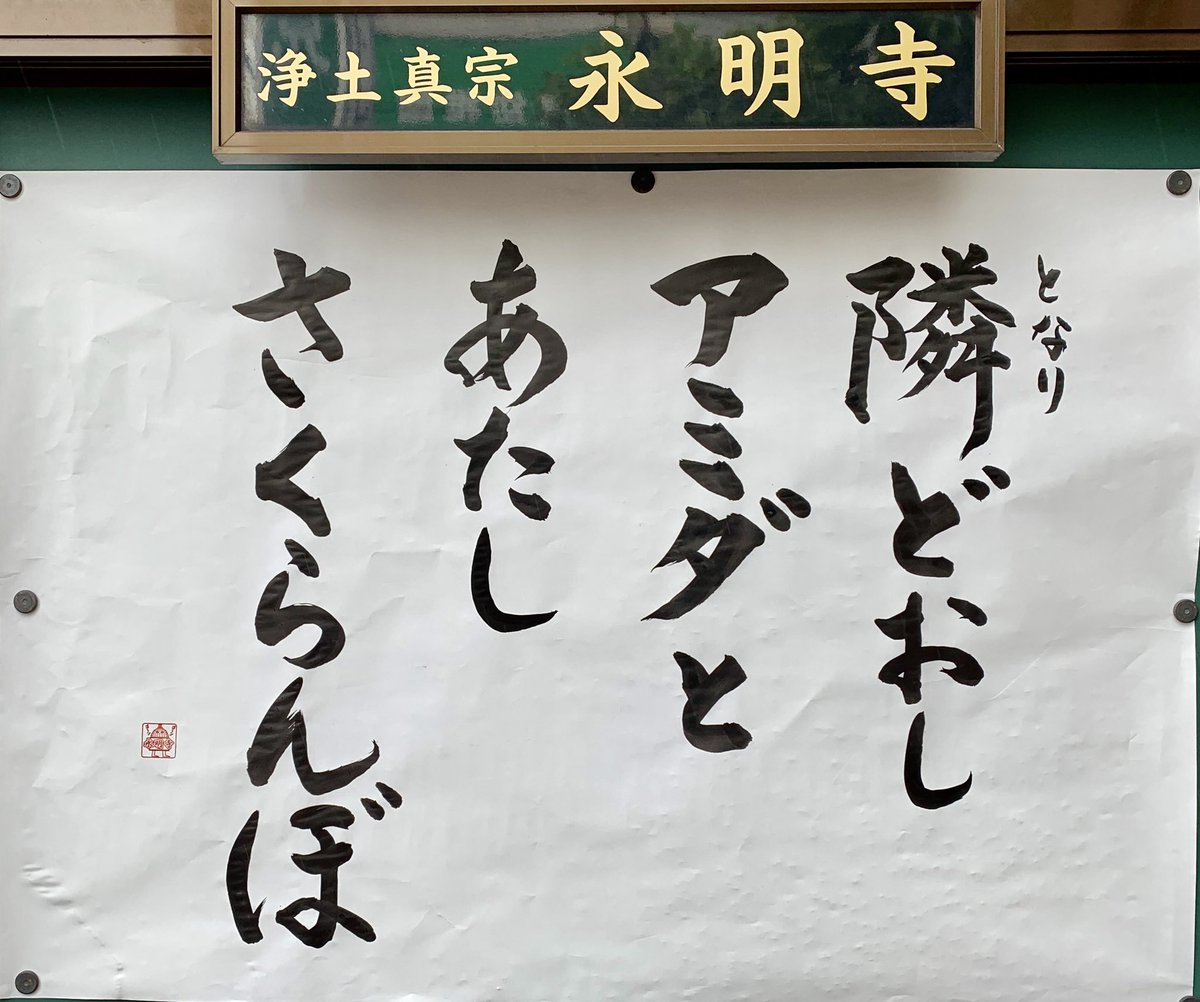 浄土真宗 永明寺
となり
隣どおし
アミダと
あたし
さくらんぼ